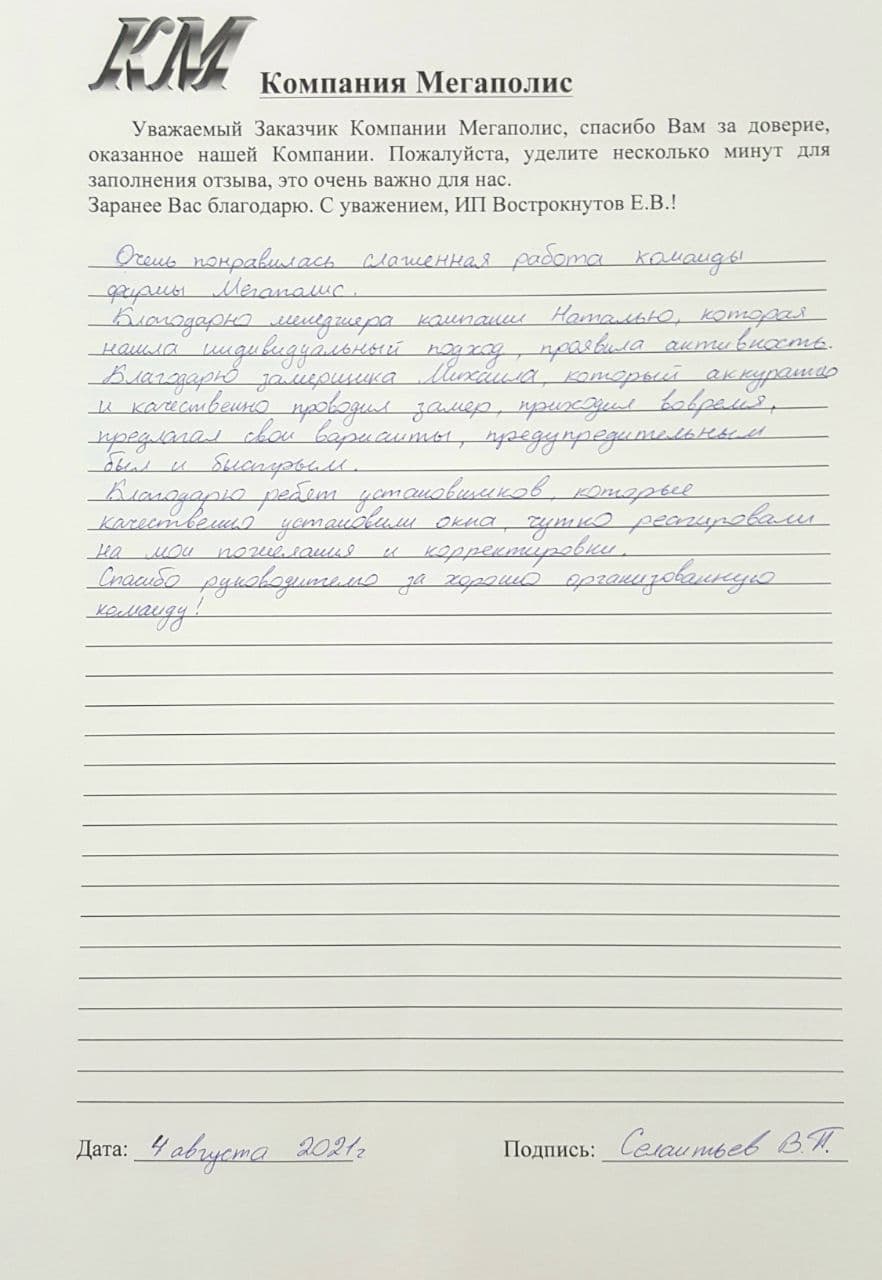 КМ
Компания Мегаполис
Уважаемый Заказчик Компании Мегаполис, спасибо Вам за доверие,
оказанное нашей Компании. Пожалуйста, уделите несколько минут для
заполнения отзыва, это очень важно для нас.
Заранее Вас благодарю. С уважением, ИП Вострокнутов Е.В.!
Очень понравилась слаженная работа команды
фирмы Мегаполис.
Благодарю менеджера компании Наталью, которая
нашла индивидуальный подход, проявила активность.
Благодарю замерщика Михаила, который аккуратно
и качественно проводил замер, приходил вовремя,
предлагал свои варианты, предупредительным
был и быстрым.
Благодарю ребят установщиков, которые
качественно установили окна, чутко реагировали
на мои пожелания и корректировки.
Спасибо руководителю за хорошо организованную
команду!
Дата: 4 августа 2021г
Подпись: В.П.